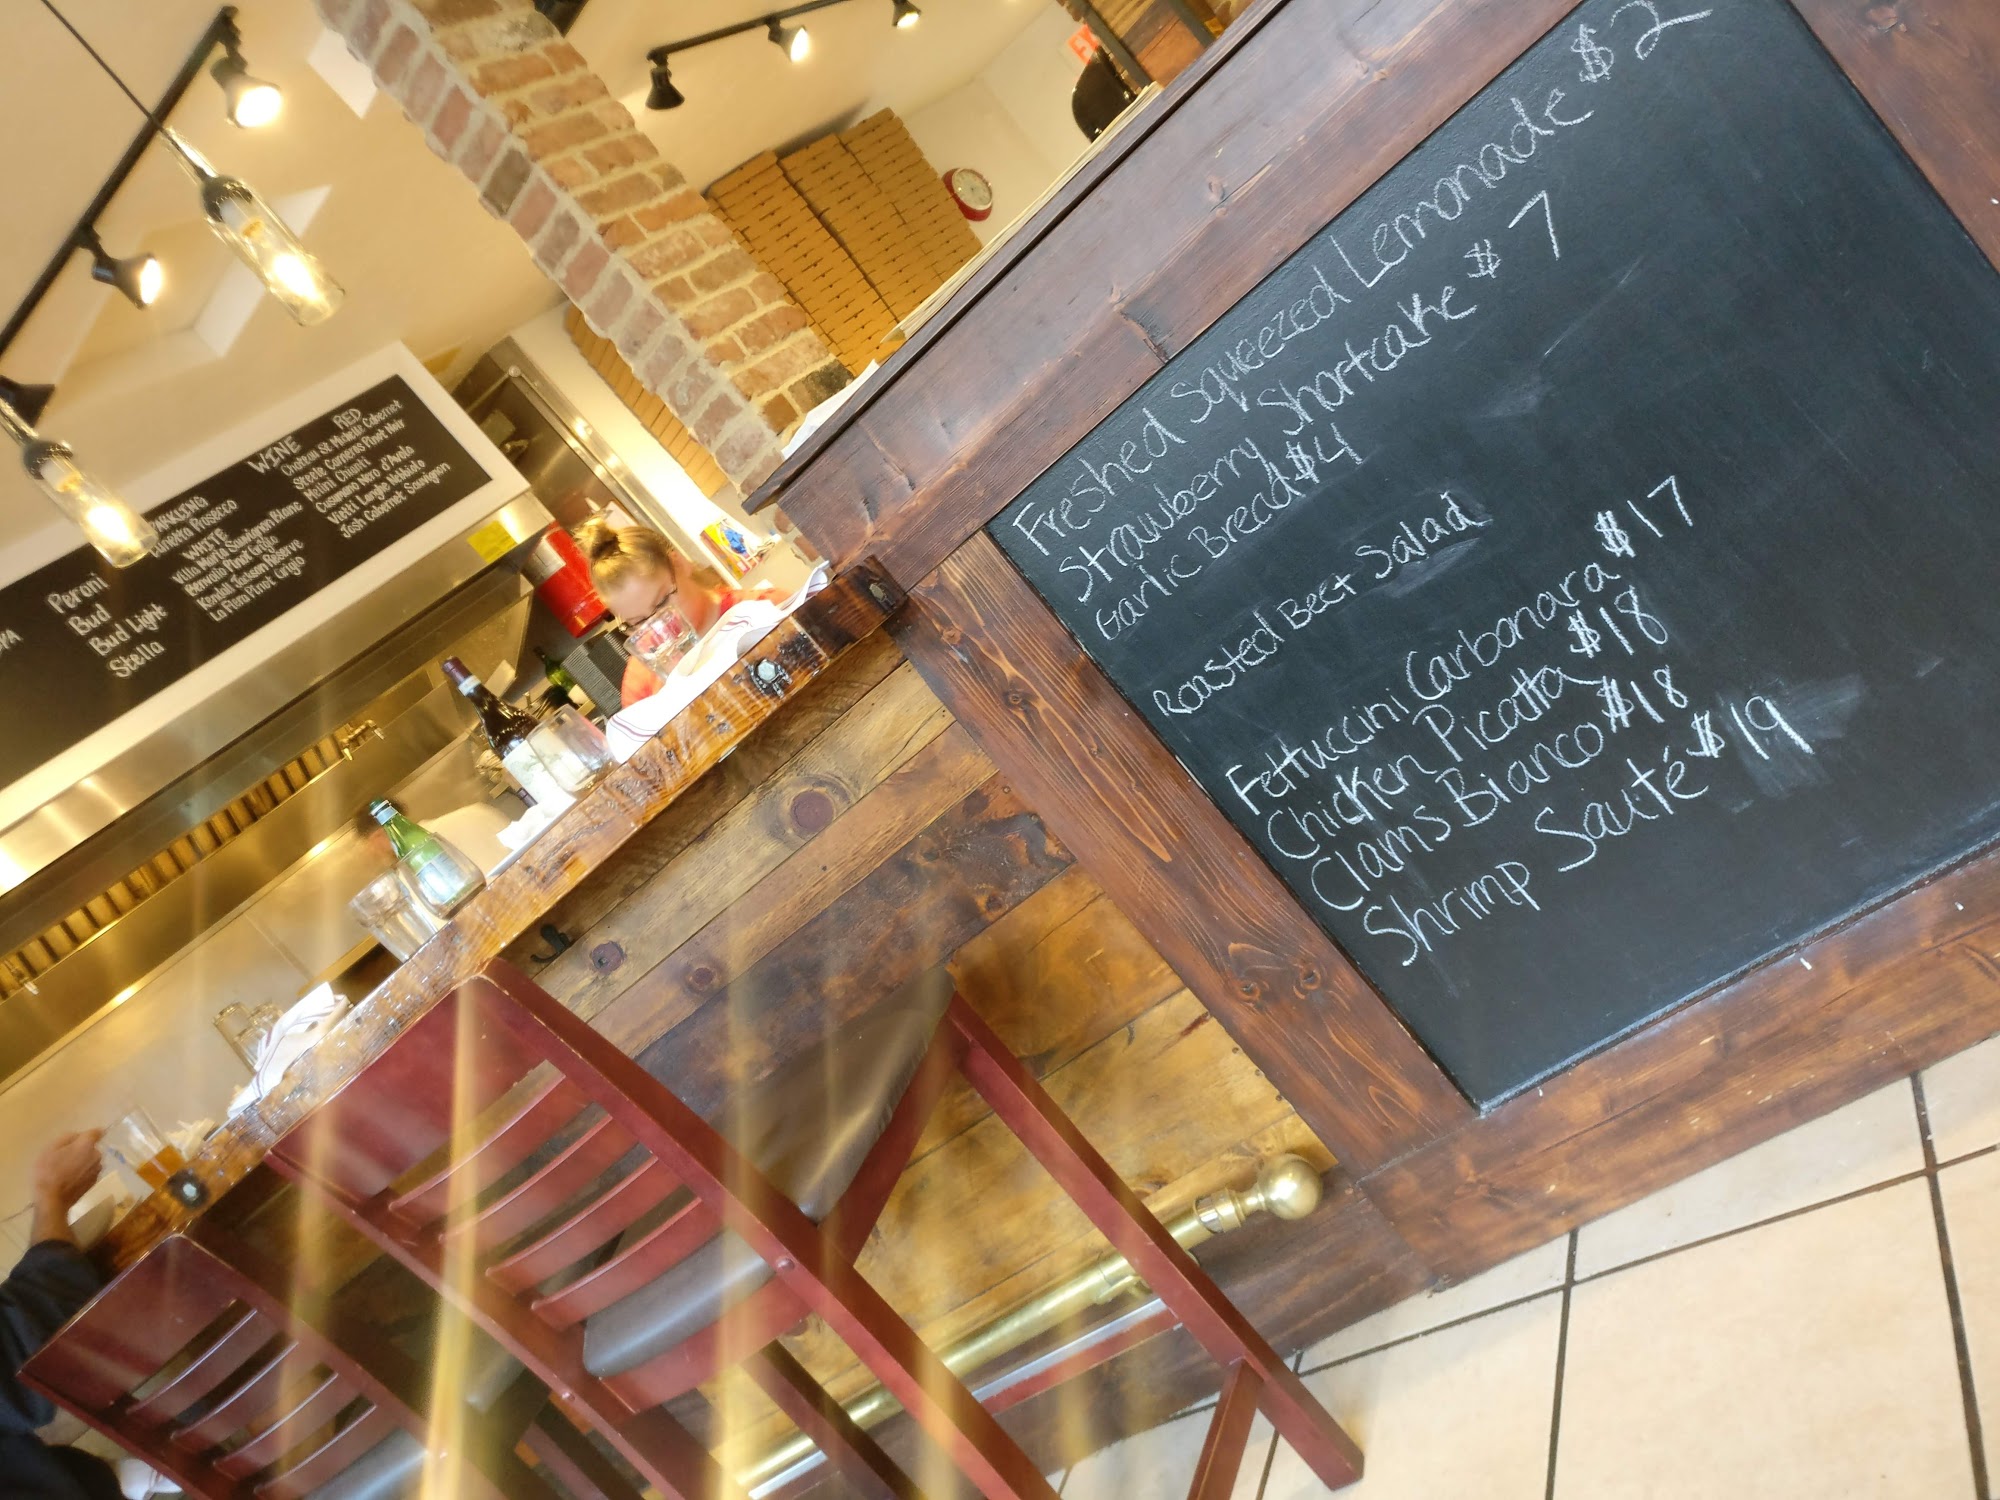 Freshed Squeezed Lemonade $2
Strawberry Shortcake $7
Garlic Bread $4
Roasted Beet Salad
Fettuccini Carbonara $17
Chicken Picatta $18
Clams Bianco $18
Shrimp Sauté $19
Peroni
Bud
Bud Light
Stella
WINE
Prosecco
WHITE
Villa Maria Sauvignon Blanc
Pinot Grigio
Kendall Jackson Reserve
La Fiera Pinot Grigio
RED
Chateau St Michelle Cabernet
Carneros Pinot Noir
Melini Chianti
Cusumano Nero d'Avola
Vietti Langhe Nebbiolo
Josh Cabernet Sauvignon